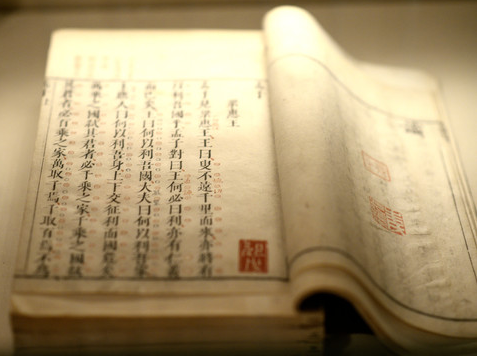 梁惠王
孟子見梁惠王王曰叟不遠千里而來亦將有
以利吾國乎孟子對曰王何必曰利亦有仁義
而已矣王曰何以利吾國大夫曰何以利吾家
士庶人曰何以利吾身上下交征利而國危矣
萬乘之國弒其君者必千乘之家千乘之國弒
其君者必百乘之家萬取千焉千取百焉不為不